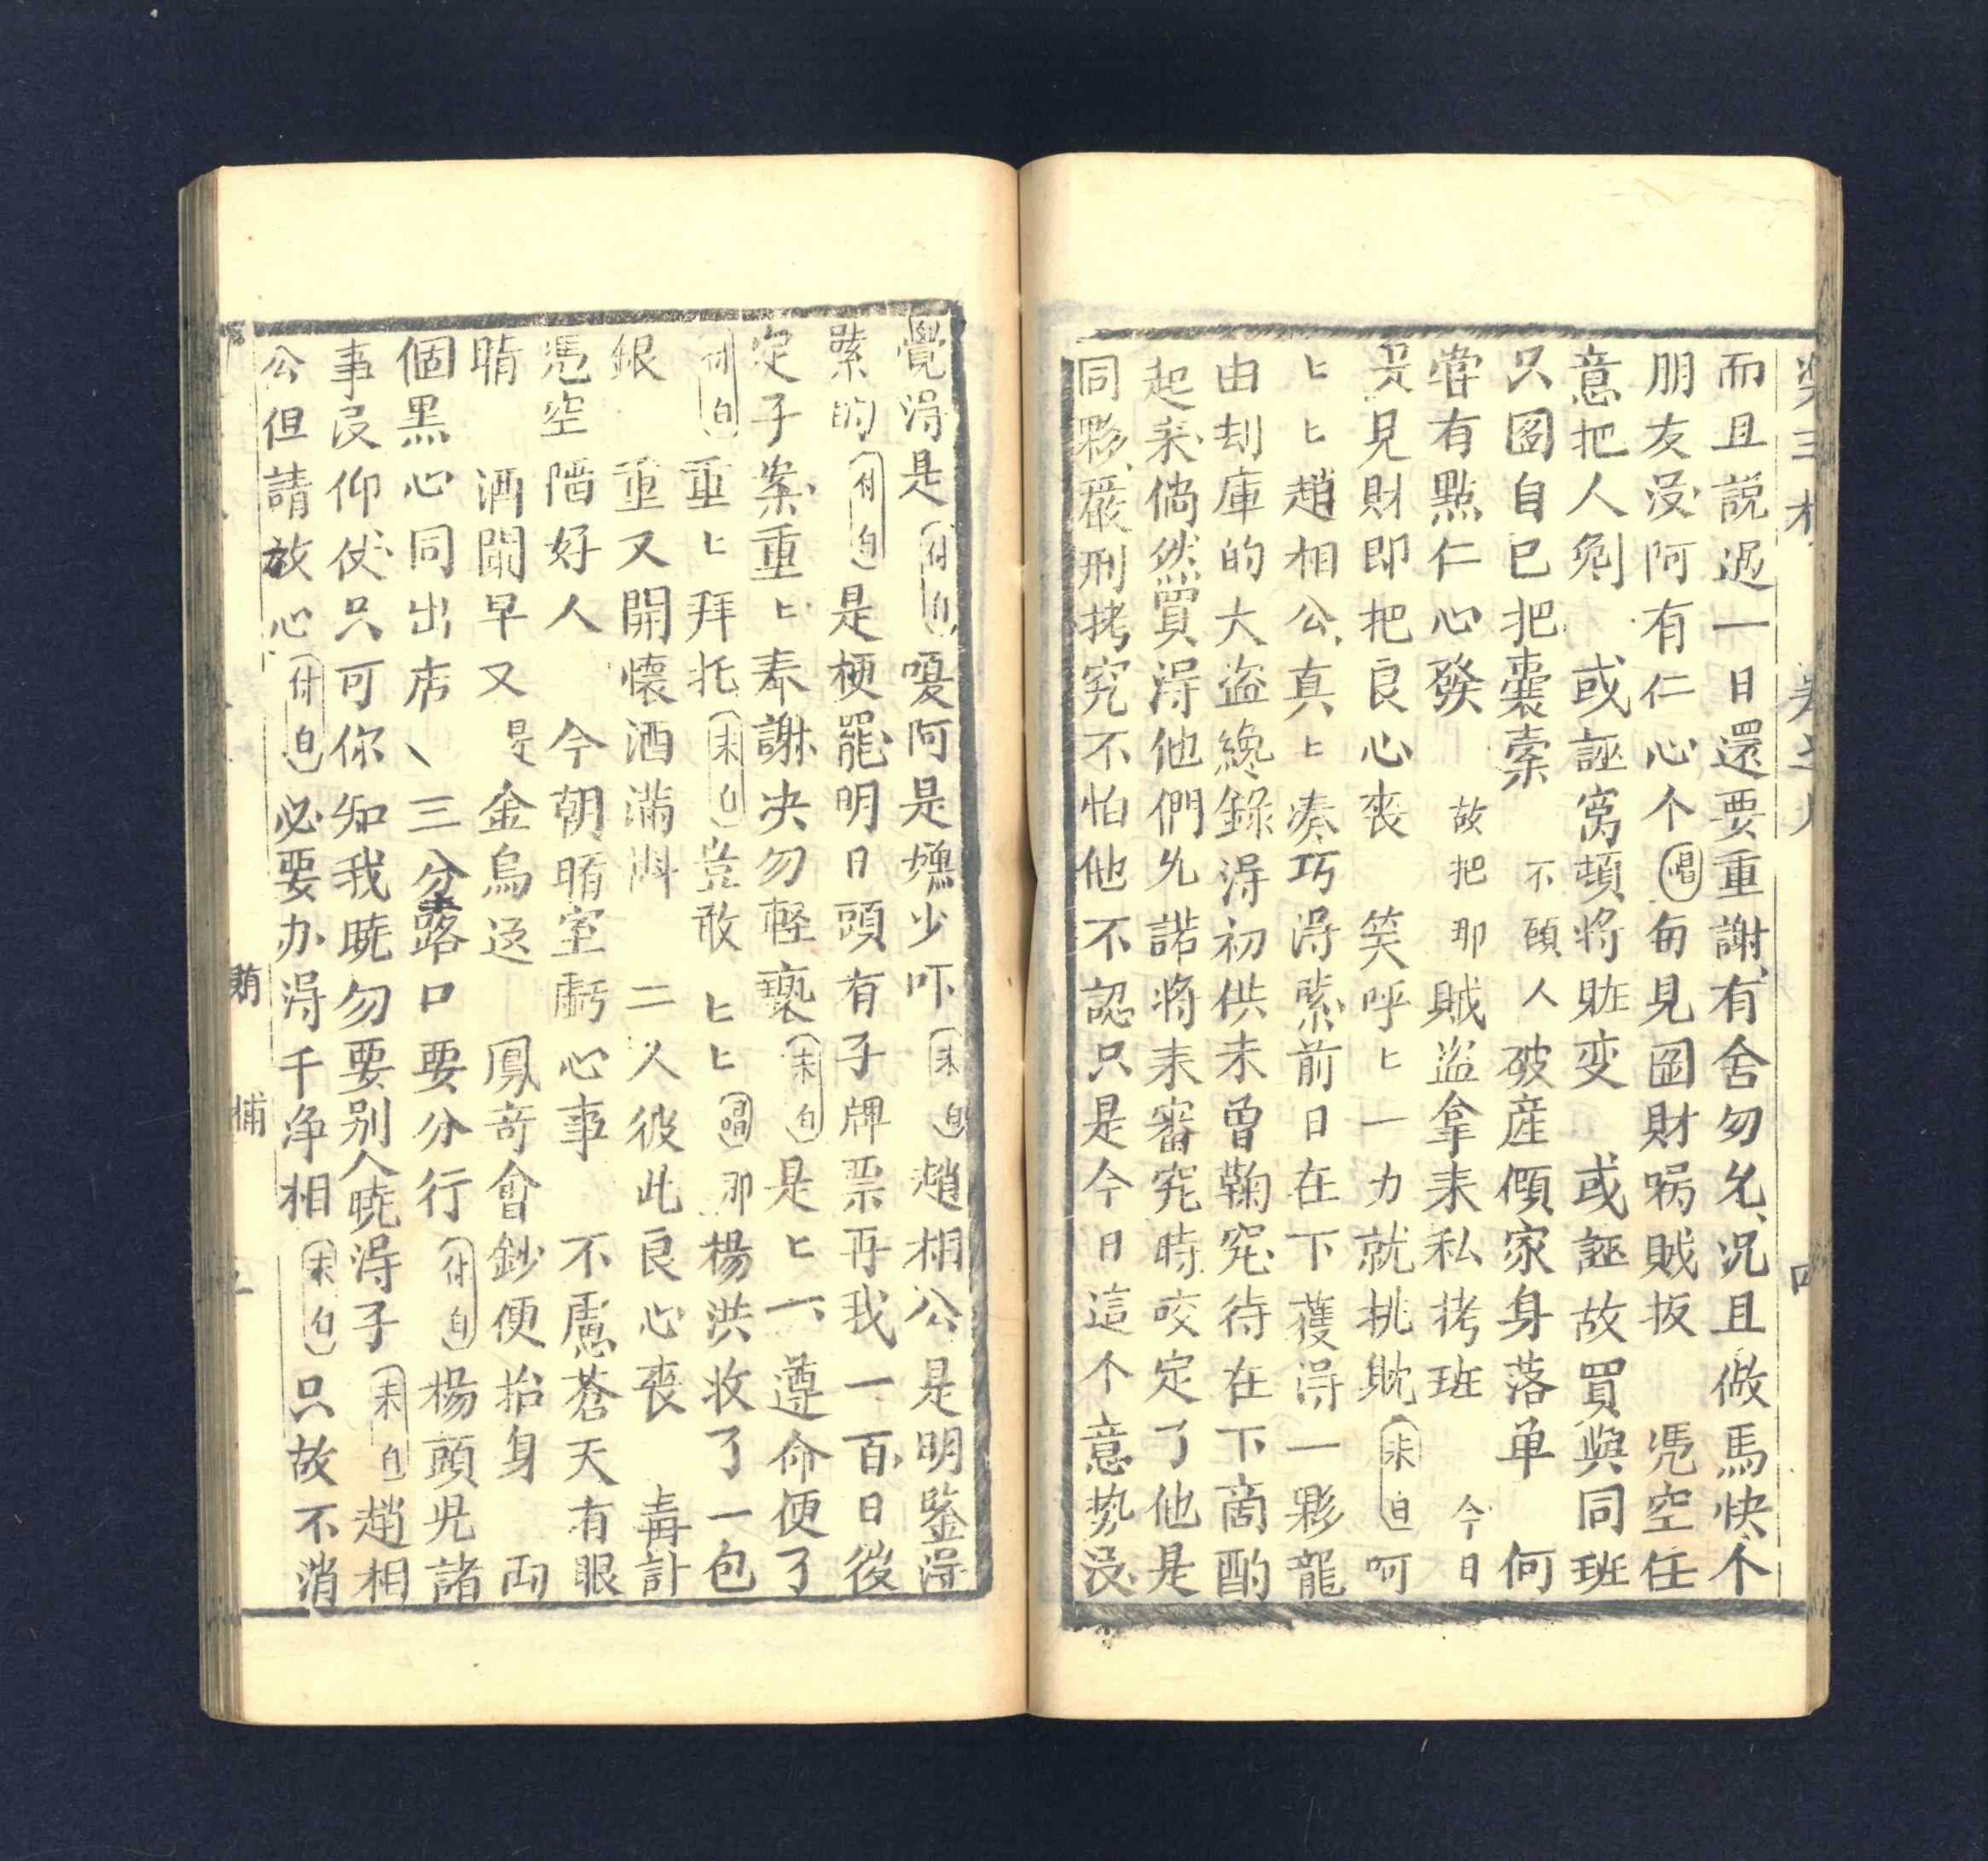 而且説過一日還要重謝有舍勿允况且做馬快个
朋友没阿有仁心个唱每見圖財唆賊扳 憑空任
意把人剜 或誣窩頓將賍变 或誣故買與同班
只圖自己把囊索 不顧人破産傾家身落单 何
嘗有點仁心發 故把那賊盜拿来私拷班 今日
見財即把良心丧 笑呼匕一力就挑躭末白呵
匕匕趙相公真匕湊巧得緊前日在下獲得一夥龍
由刦庫的大盜纔錄得初供未曾鞠究待在下商酌
起来倘然買得他們允諾將来審究時咬定了他是
同夥嚴刑拷究不怕他不認只是今日這个意势没
覺得是付白嗄阿是嫌少吓末白趙相公是明鑒得
緊的付白是梗罷明日頭有子牌票再我一百日後
定子案重匕奉謝决勿輕褻末白是匕遵命便了
付白重匕拜托末白豈敢匕匕唱那楊洪收了一包
銀 重又開懷酒滿斟 二人彼此良心丧 毒計
憑空 好人 今朝暗室虧心事 不慮蒼天有眼
睛 酒闌早又是金烏返 鳳奇會鈔便抬身 両
個黑心同出店 三分路口要分行付白楊頭兒諸
事没仰仗只可你知我曉勿要别人曉得子末白趙相
公但請放心付白必要办得干净相末白只故不消